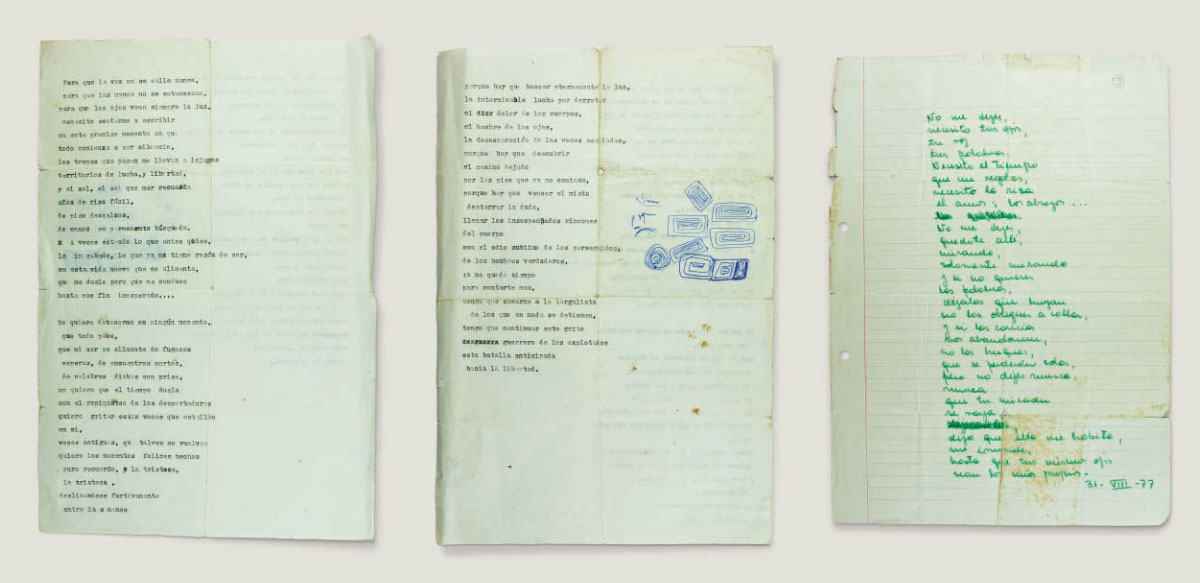 Para que la voz no se calle nunca,
para que las manos no se entumezcan,
para que los ojos vean siempre la luz,
necesito sentarme a escribir
en este preciso momento en que
todo comienza a ser silencio,
los trenes que pasan me llevan a lejanos
territorios de lucha, y libertad,
y el sol, el sol que me recuerda
años de risa fácil,
de pies descalzos,
de manos en permanente búsqueda.
A veces extraño lo que antes quise,
lo , lo que ya no tiene razón de ser,
en esta vida nueva que me alimenta,
que me duele pero que me conduce
hasta ese fin insuperado....
No quiero detenerme en ningún momento,
que todo pase,
que mi ser se alimente de fugaces
esperas, de encuentros cortos,
de palabras dichas con prisa,
no quiero que el tiempo duela
con el repiqueteo de los despertadores
quiero gritar estas voces que estallan
en mi,
voces antiguas, que talvez no vuelvan
quiero los momentos felices hechos
puro recuerdo, y la tristeza,
la tristeza ,
deslizandose furtivamente
entre la s manos
porque hay que buscar eternamente la luz,
la interminable lucha por derrotar
el dolor de los cuerpos,
el hambre de los ojos,
la desesperación de las voces acalladas,
porque hay que descubrir
el camino dejado
por los pies que ya no caminan,
porque hay que vencer el miedo
desterrar la duda,
llenar los insospechados rincones
del cuerpo
con el odio sublime de los perseguidos,
de los hombres verdaderos,
ya no queda tiempo
para contarte mas,
tengo que sumarme a la larga lista
de los que en nada se detienen,
tengo que continuar este grito
guerrero de los explotados
esta batalla anticipada
hacia la libertad.
3
No me dejes,
necesito tus ojos,
tu voz
tus palabras
Necesito el tiempo
que me regalas,
necesito la risa
el amor, los abrazos ...
No me dejes,
quedate allí,
mirando,
solamente mirando
y si no quieres
las palabras,
déjalas que huyan
no las obligues a callar,
y si las caricias
nos abandonan,
no las busques,
que se perderán solas,
pero no dejes nunca,
nunca
que tu mirada
se vaya
deja que ella me habite,
me inunde,
hasta que tus mismos ojos
sean los míos propios.
31-VIII-77